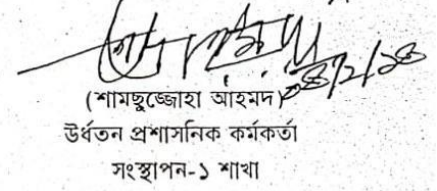 (শামছুজ্জোহা আহমদ)
উর্ধতন প্রশাসনিক কর্মকর্তা
সংস্থাপন-১ শাখা